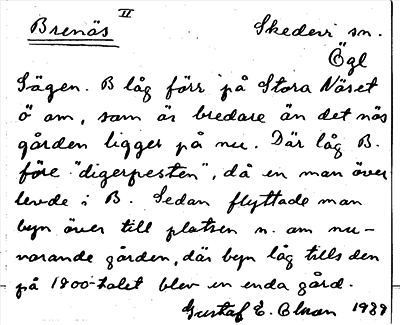 Brenäs II
Skedevi sn.
Ögl
Sägen. B låg förr på Stora Näset
ö om, som är bredare än det näs
gården ligger på nu. Där låg B.
före "digerpesten", då en man över
levde i B. Sedan flyttade man
byn över till platsen n. om nu-
varande gården, där byn låg tills den
på 1800-talet blev en enda gård.
Gustaf E. Olsson 1989